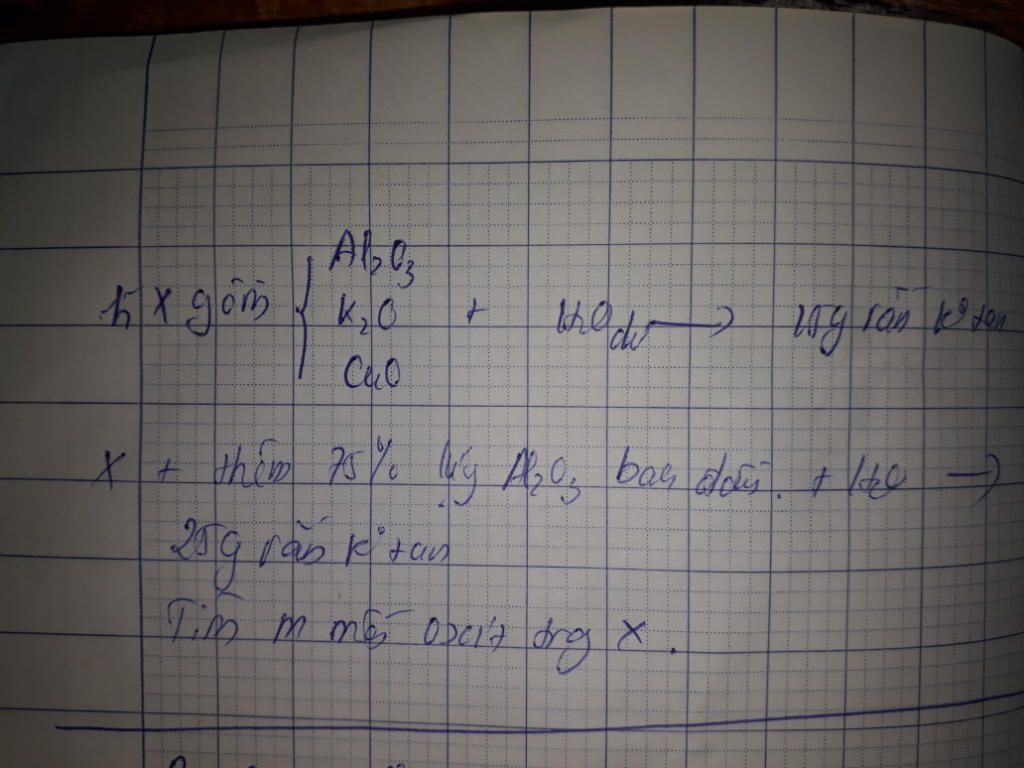 hh X gồm { Al2O3
K2O + H2O dư → 15g rắn k° tan
CuO
X + thêm 75% lượg Al2O3 ban đầu. + H2O →
25g rắn k° tan
Tìm m mỗi oxit trg X.